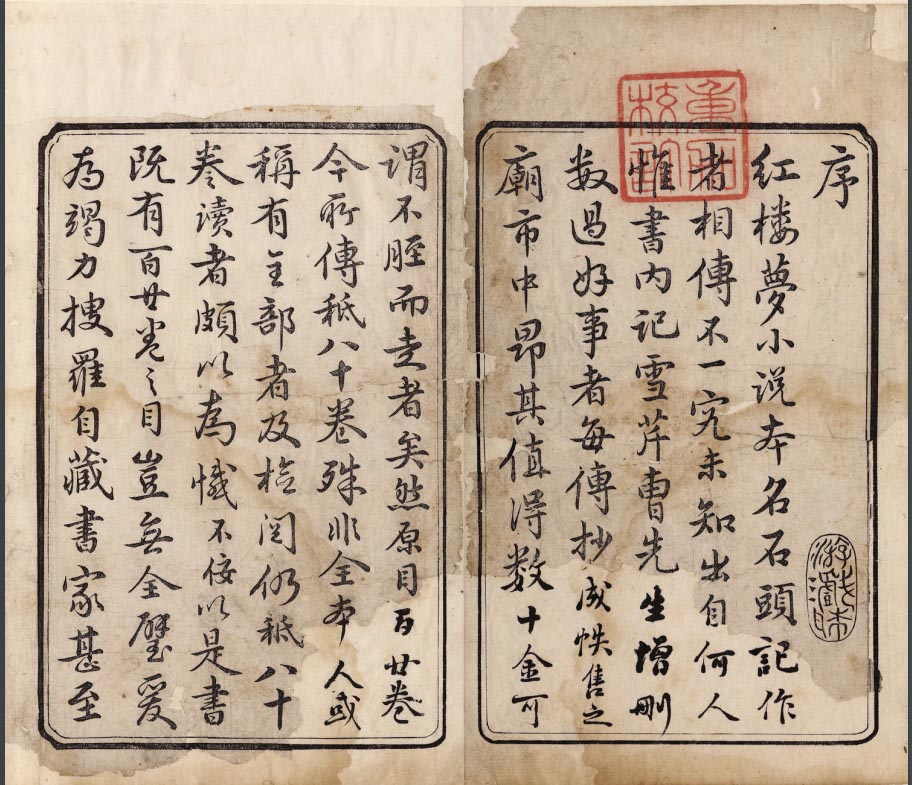 序
红楼夢小说本名石頭記作
者相傳不一究未知出自何人
惟書内記雪芹曹先生增刪
数過好事者每傳抄成帙售之
廟市中昂其值得数十金可
謂不脛而走者矣然原目百廿卷
今所傳秪八十卷殊非全本人或
稱有全部者及檢閲仍秪八十
卷讀者頗以為憾不佞以是書
既有百廿卷之目豈無全璧爰
為竭力搜羅自藏書家甚至